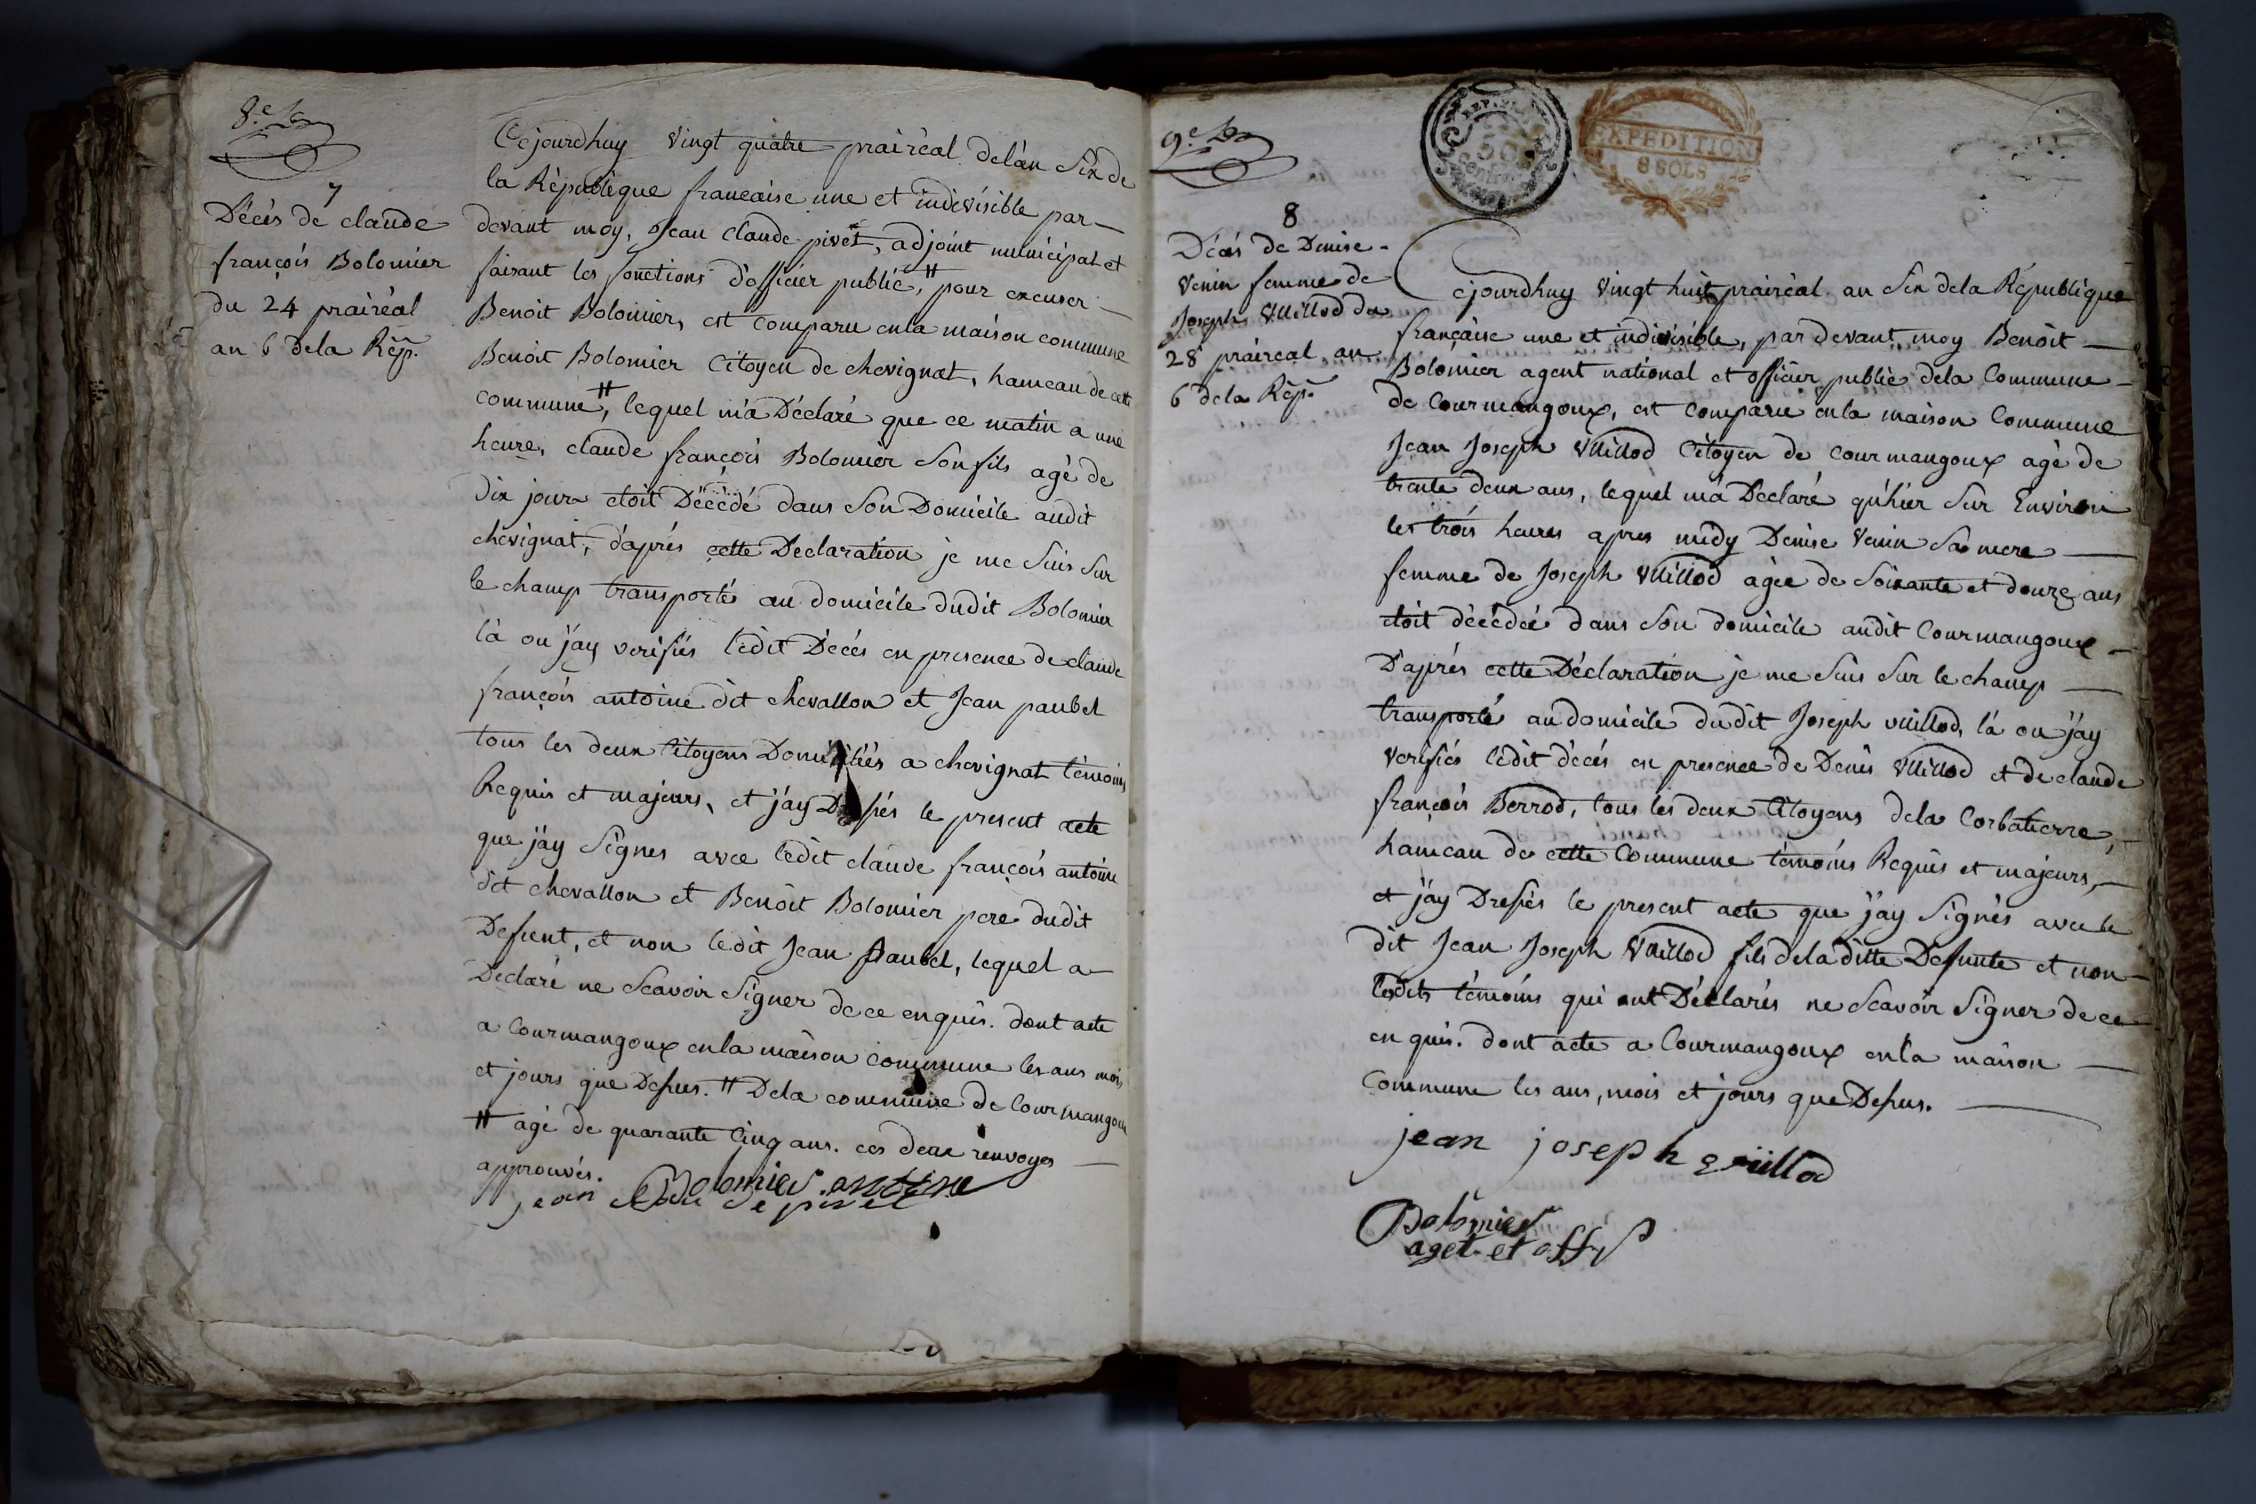 8.e
7
Décès de claude
françois Bolomier
du 24 prairéal
an 6 dela Rép.
Cejourdhuy vingt quatre prairéal delàn Six de
la République francaise une et indivisible par-
devant moy, Jean Claude pivet, adjoint municipal et
faisant les fonctions d'officier public, # pour excuser
Benoit Bolomier, est Comparu enla maison commune
Benoit Bolomier Citoyen de chevignat, hameau de cette
commune #, lequel m'a Déclaré que ce matin a une
heure, claude françois Bolomier Son fils agé de
dix jours etoit Décédé dans Son Domicile audit
chevignat, d'aprés cette Declaration je me Suis Sur
le champ transportés au domicile dudit Bolomier
là ou j'ay verifiés ledit Décés en presence de claude
françois antoine dit chevallon et Jean paubel
tous les deux Citoyens Domiciliés a chevignat témoins
Requis et majeurs, et j'ay Dressés le present acte
que j'ay Signes avec ledit claude françois antoine
dit chevallon et Benoit Bolomier pere dudit
Defient, et non ledit Jean paubel, lequel a
Declaré ne Scavoir Signer de ce enquis. dont acte
a Courmangoux enla maison commune les ans mois
et jours que Dessus. # Dela commune de Courmangoux
# agé de quarante Cinq ans. ces deux renvoyes
approuvés.
Bolomier antoine
jean Claude pivet
9.e
REP.
50
Centim
EXPEDITION
8 SOLS
8
Décés de Denise
Venin femme de
Joseph Vuillod du
28 prairéal an
6 dela Rép.
Cejourdhuy vingt huit prairéal an Six dela République
française une et indivisible, par devant moy Benoit
Bolomier agent national et officier public dela Commune
de Courmangoux, est comparu enla maison Commune
Jean Joseph Vuillod Citoyen de Courmangoux agé de
trente deux ans, lequel m'a Declaré qu'hier Sur Environ
les trois heures apres midy Denise Venin Sa mere
femme de Joseph Vuillod agée de Soixante et douze ans
etoit décédée dans Son domicile audit Courmangoux
D'aprés cette Déclaration je me Suis Sur le champ
transporté au domicile dudit Joseph vuillod, là ou j'ay
verifiés ledit décés en presence de Denis Vuillod et de claude
françois Berrod, tous les deux Citoyens dela Corbatierre,
hameau de cette Commune témoins Requis et majeurs,
et j'ay Dressés le present acte que j'ay Signés avec le
dit Jean Joseph Vuillod fils dela ditte Defunte et non
lesdits témoins qui ont Déclarés ne Scavoir Signer de ce
en quis. dont acte a Courmangoux enla maison
Commune les ans, mois et jours que Dessus.
jean joseph vuillod
Bolomier
aget et offr